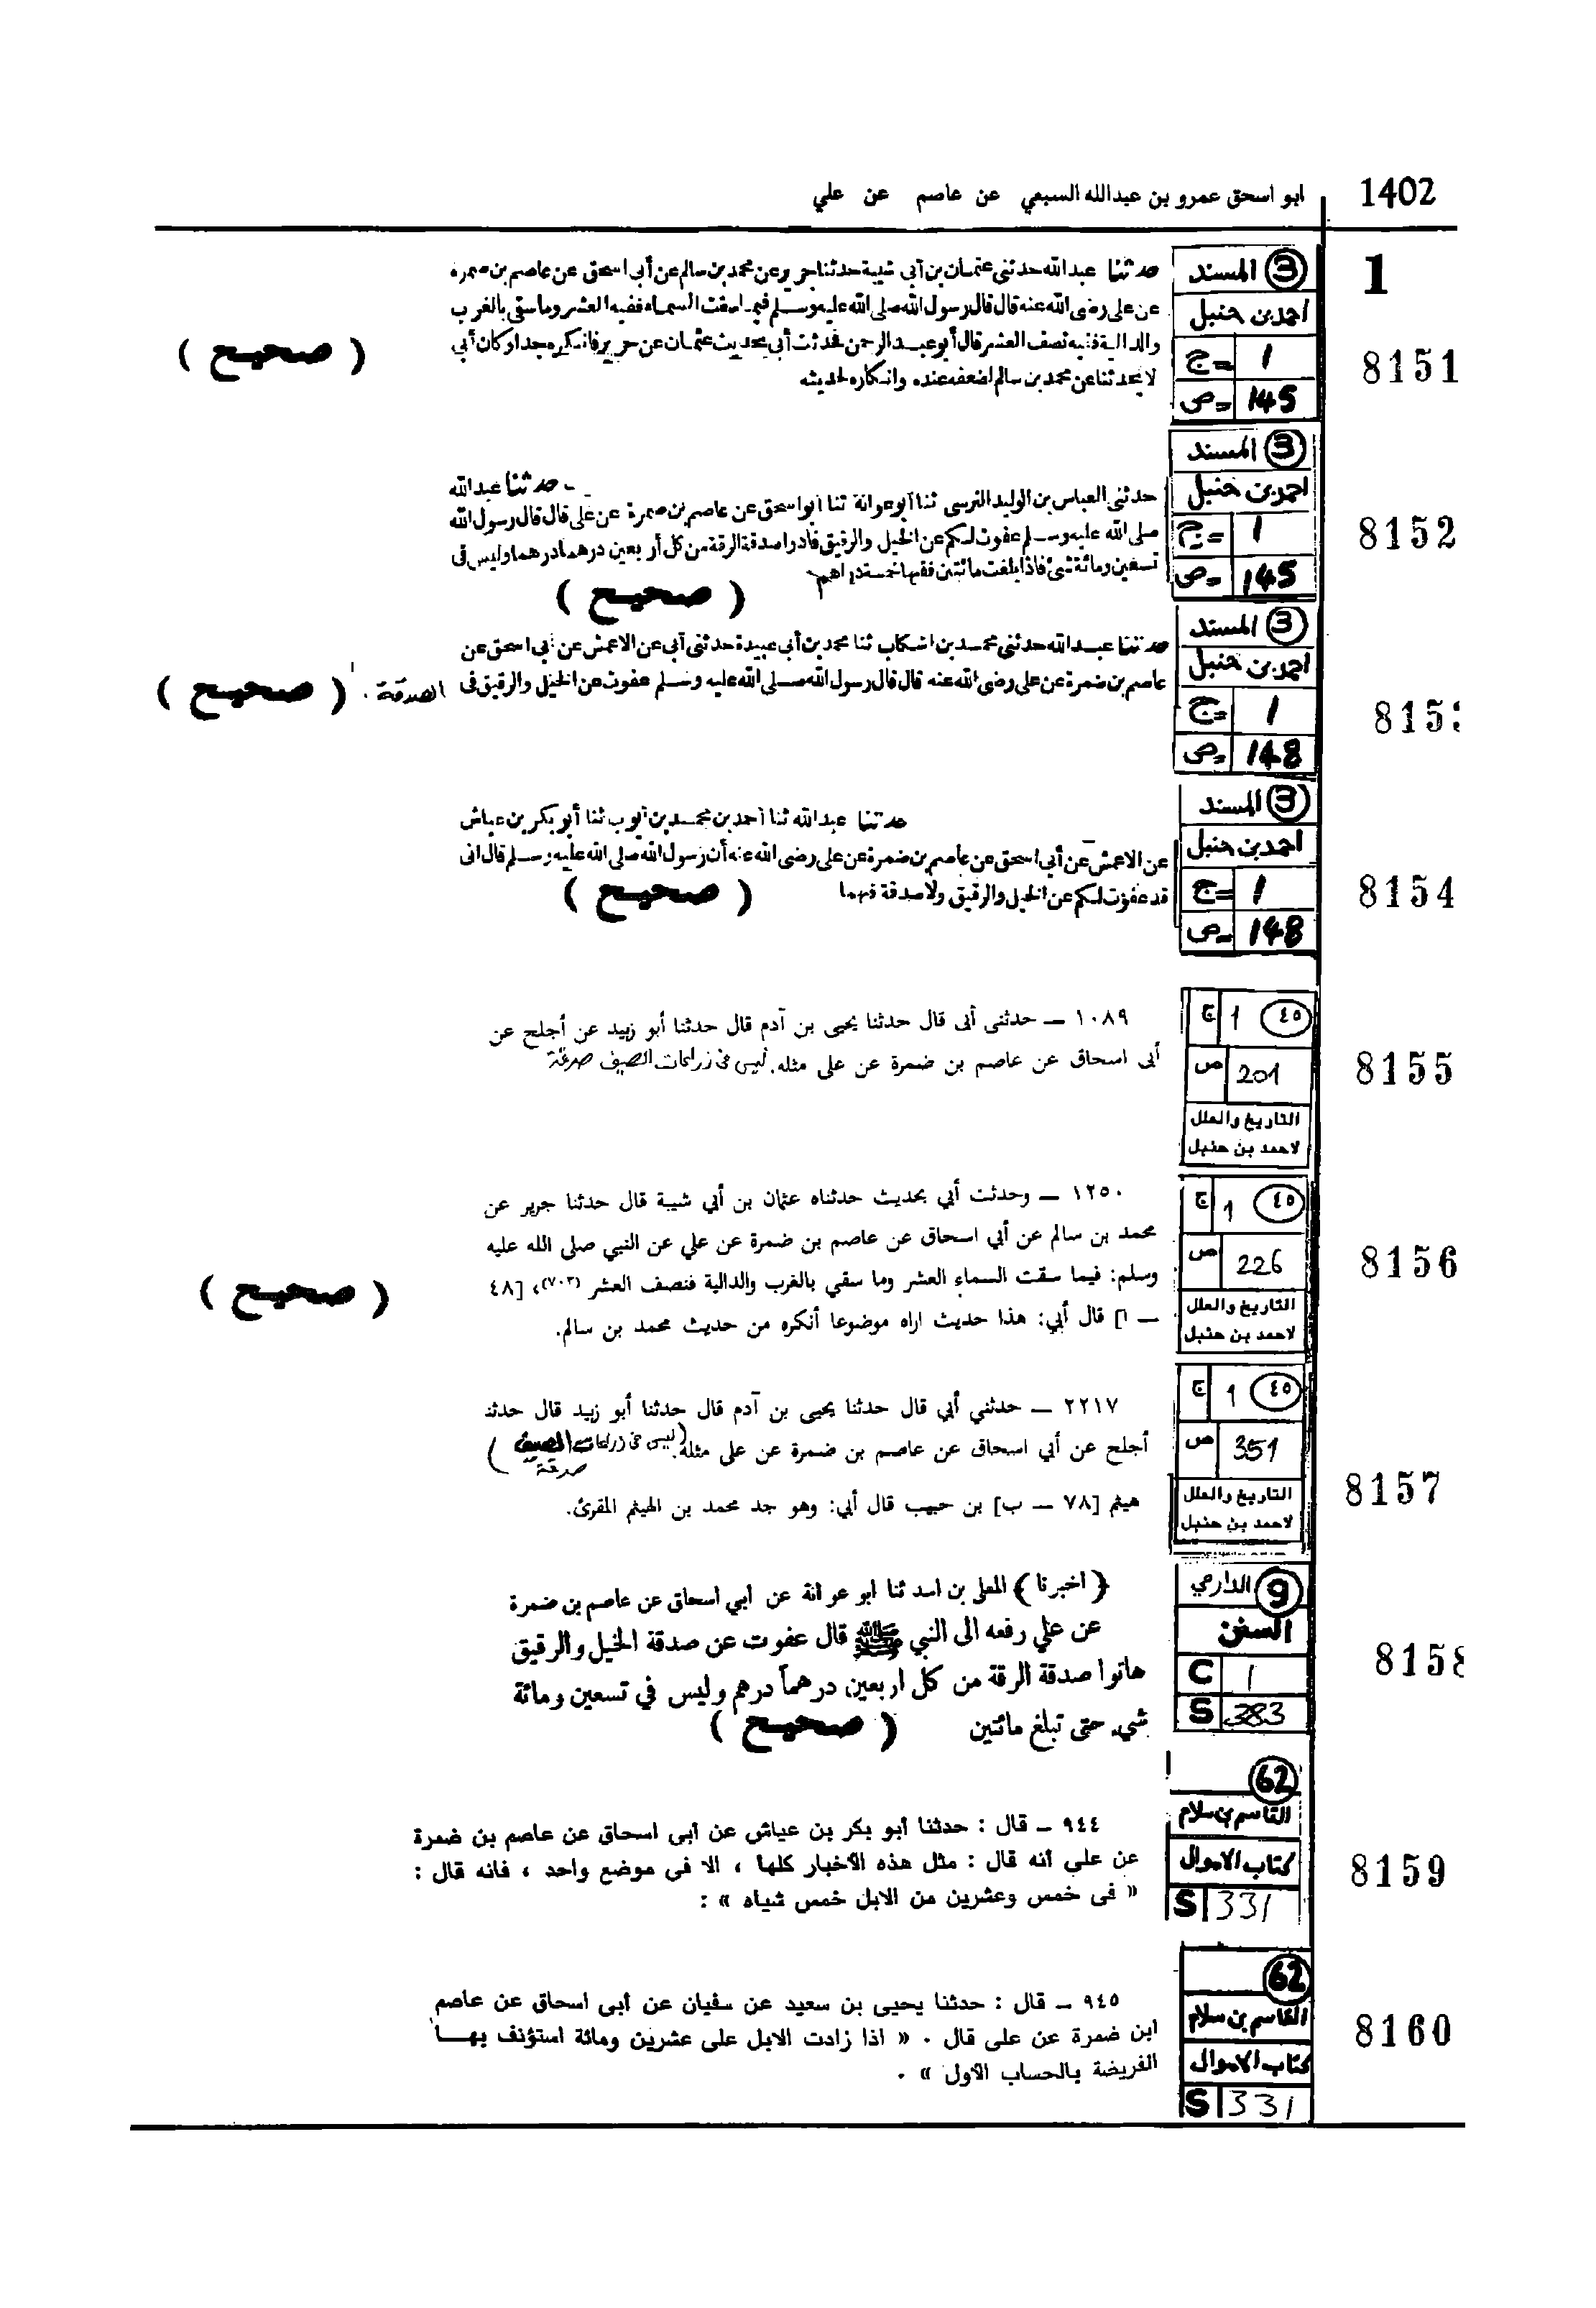 1402
ابو اسحق عمرو بن عبدالله السبعي عن عاصم عن علي
1
8151
③ المسند
احمد بن حنبل
1 ج=
145 ص=
حدثنا عبدالله حدثني عثمان بن أبي شيبة حدثنا جرير عن محمد بن سالم عن أبي اسحق عن عاصم بن ضمرة
عن علي رضى الله عنه قال قال رسول الله صلى الله عليه وسلم فيما سقت السماء ففيه العشر وما سقى بالغرب
والدالية ففيه نصف العشر قال أبو عبد الرحمن فحدثت أبي بحديث عثمان عن جرير فانكره جدا وكان أبي
لا يحدثنا عن محمد بن سالم لضعفه عنده وانكاره لحديثه
( صحيح )
8152
③ المسند
احمد بن حنبل
1 ج=
145 ص=
حدثنا عبدالله
حدثني العباس بن الوليد النرسى ثنا أبو عوانة ثنا أبو اسحق عن عاصم بن ضمرة عن على قال قال رسول الله
صلى الله عليه وسلم عفوت لكم عن الخيل والرقيق فادوا صدقة الرقة من كل أربعين درهما درهما وليس في
تسعين ومائة شئ فاذا بلغت مائتين ففيها خمسة دراهم
( صحيح )
815
③ المسند
احمد بن حنبل
1 ج=
148 ص=
حدثنا عبد الله حدثني محمد بن اشكاب ثنا محمد بن أبي عبيدة حدثنى أبي عن الاعمش عن أبي اسحق عن
عاصم بن ضمرة عن على رضى الله عنه قال قال رسول الله صلى الله عليه وسلم عفوت عن الخيل والرقيق فى الصدقة .
( صحيح )
8154
③ المسند
احمد بن حنبل
1 ج=
148 ص=
حدثنا عبدالله ثنا أحمد بن محمد بن أيوب ثنا أبو بكر بن عياش
عن الاعمش عن أبي اسحق عن عاصم بن ضمرة عن على رضى الله عنه أن رسول الله صلى الله عليه وسلم قال انى
قد عفوت لكم عن الخيل والرقيق ولا صدقة فيهما
( صحيح )
8155
٤٥ 1 ج
201 ص
التاريخ والعلل
لاحمد بن حنبل
١٠٨٩ ــ حدثنى أبى قال حدثنا يحيى بن آدم قال حدثنا أبو زبيد عن أجلح عن
أبى اسحاق عن عاصم بن ضمرة عن على مثله. ليس في زراعات الصيف صدقة
8156
٤٥ 1 ج
226 ص
التاريخ والعلل
لاحمد بن حنبل
١٢٥٠ ــ وحدثت أبي بحديث حدثناه عثمان بن أبي شيبة قال حدثنا جرير عن
محمد بن سالم عن أبي اسحاق عن عاصم بن ضمرة عن علي عن النبي صلى الله عليه
وسلم: فيما سقت السماء العشر وما سقي بالغرب والدالية فنصف العشر (٧٠٣)، [٤٨
ــ ا] قال أبي: هذا حديث اراه موضوعا أنكره من حديث محمد بن سالم.
( صحيح )
8157
٤٥ 1 ج
351 ص
التاريخ والعلل
لاحمد بن حنبل
٢٢١٧ ــ حدثني أبي قال حدثنا يحيى بن آدم قال حدثنا أبو زبيد قال حدثنـ
أجلح عن أبي اسحاق عن عاصم بن ضمرة عن على مثله. (ليس في زراعات الصيف
صدقة )
هيثم [٧٨ ــ ب] بن حبيب قال أبي: وهو جد محمد بن الهيثم المقرئ.
8158
⑨ الدارمي
السنن
C 1
S 383
( أخبرنا ) المعلى بن اسد ثنا ابو عوانة عن ابي اسحاق عن عاصم بن ضمرة
عن علي رفعه الى النبي ﷺ قال عفوت عن صدقة الخيل والرقيق
هاتوا صدقة الرقة من كل اربعين درهماً درهم وليس في تسعين ومائة
شيء حتى تبلغ مائتين
( صحيح )
8159
62
القاسم بن سلام
كتاب الاموال
S 331
٩٤٤ ــ قال : حدثنا أبو بكر بن عياش عن أبى اسحاق عن عاصم بن ضمرة
عن على أنه قال : مثل هذه الأخبار كلها ، الا فى موضع واحد ، فانه قال :
« فى خمس وعشرين من الابل خمس شياه » :
8160
62
القاسم بن سلام
كتاب الاموال
S 331
٩٤٥ ــ قال : حدثنا يحيى بن سعيد عن سفيان عن أبى اسحاق عن عاصم
ابن ضمرة عن على قال . « اذا زادت الابل على عشرين ومائة استؤنف بهـا
الفريضة بالحساب الأول » .